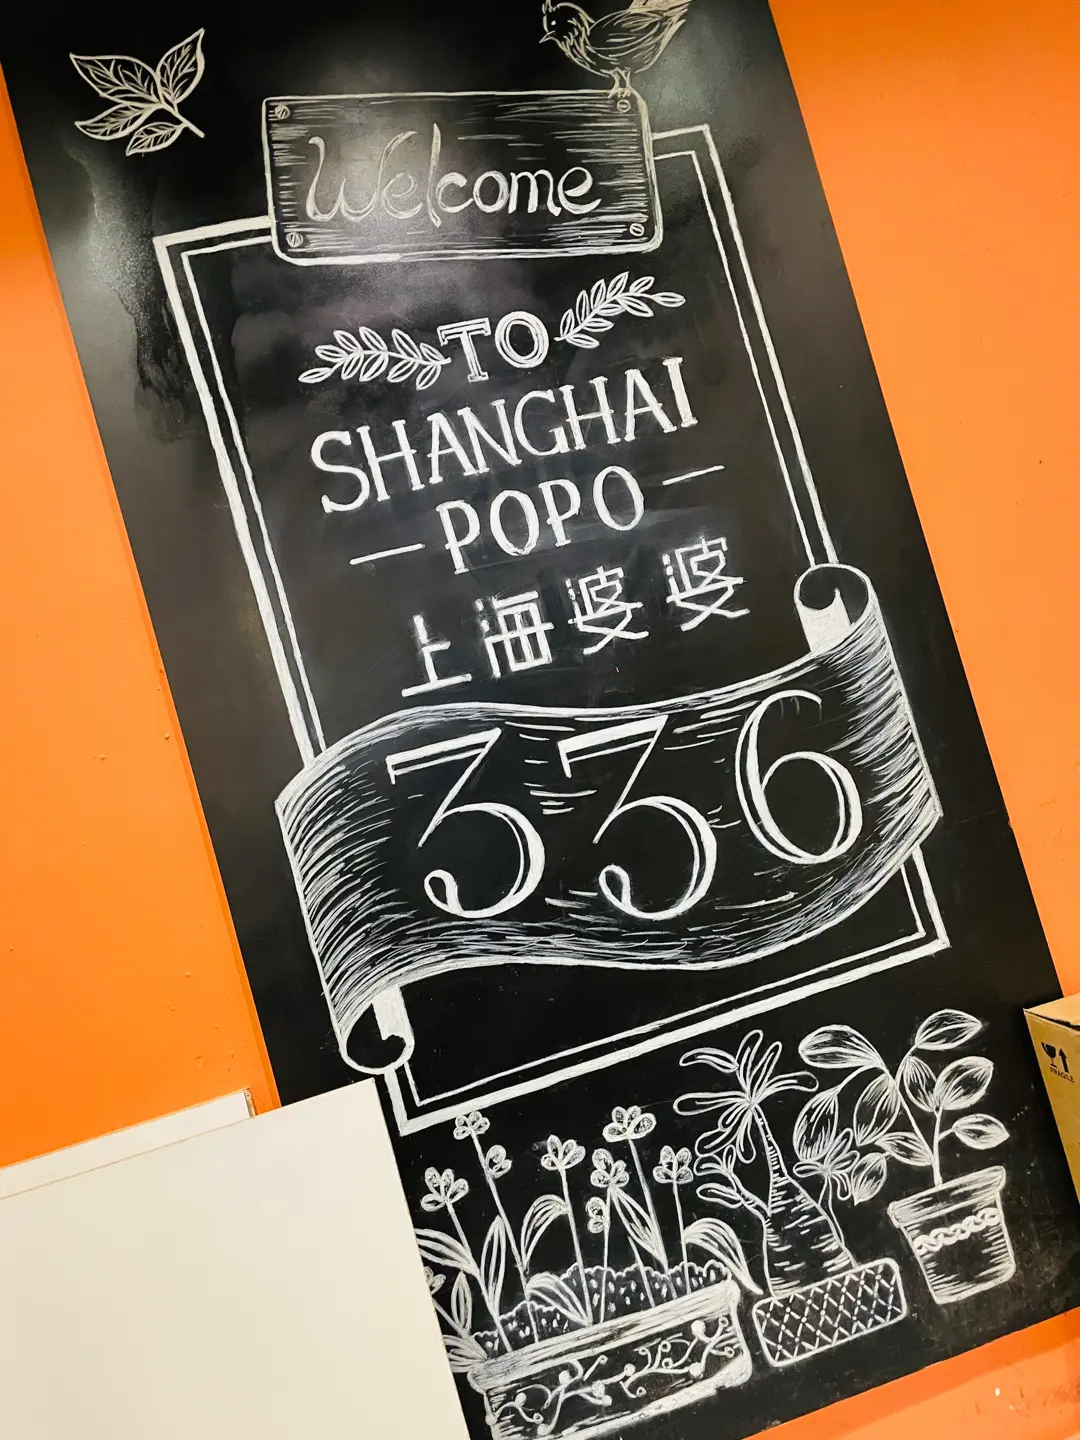 Welcome
TO
SHANGHAI
POPO
上海婆婆
336
FRAGILE